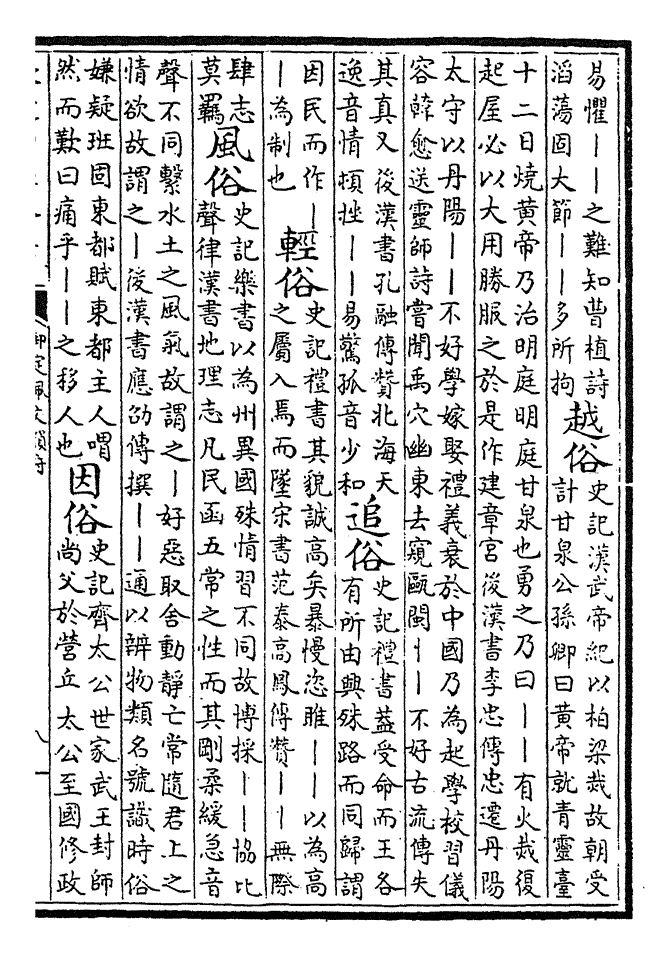 易懼丨丨之難知曹植詩
滔蕩固大節丨丨多所拘
越俗
史記漢武帝紀以柏梁烖故朝受
計甘泉公孫卿曰黄帝就青靈臺
十二日燒黄帝乃治明庭明庭甘泉也勇之乃曰丨丨有火烖復
起屋必以大用勝服之於是作建章宫後漢書李忠傳忠遷丹陽
太守以丹陽丨丨不好學嫁娶禮義衰於中國乃為起學校習儀
容韓愈送靈師詩嘗聞禹穴幽東去窺甌閩丨丨不好古流傳失
其真又後漢書孔融傳贊北海天
逸音情頓挫丨丨易驚孤音少和
追俗
史記禮書蓋受命而王各
有所由興殊路而同歸謂
因民而作丨
丨為制也
輕俗
史記禮書其貌誠高矣暴慢恣睢丨丨以為高
之屬入焉而墜宋書范泰高鳳傳贊丨丨無際
肆志
莫羈
風俗
史記樂書以為州異國殊情習不同故博採丨丨協比
聲律漢書地理志凡民函五常之性而其剛柔緩急音
聲不同繫水土之風氣故謂之丨好惡取舍動靜亡常隨君上之
情欲故謂之丨後漢書應劭傳撰丨丨通以辨物類名號識時俗
嫌疑班固東都賦東都主人喟
然而歎曰痛乎丨丨之移人也
因俗
史記齊太公世家武王封師
尚父於營丘太公至國修政
御定佩文韻府
八